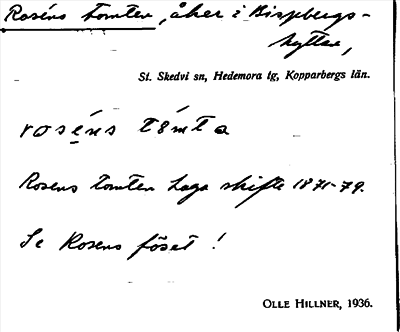 Roséns tomten, åker i Bispbergs-
hyttan,
St. Skedvi sn, Hedemora tg, Kopparbergs län.
roséns tömta
Rosens tomten laga skifte 1871-79.
Se Rosens föset!
OLLE HILLNER, 1936.